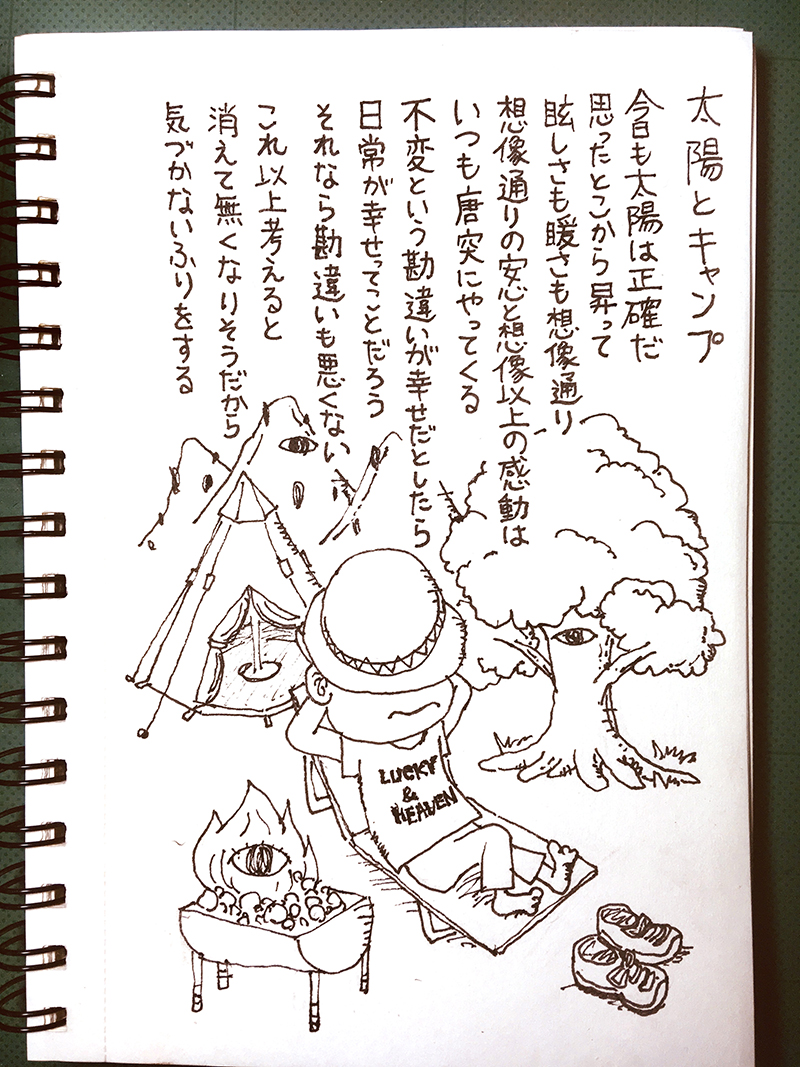 太陽とキャンプ
今日も太陽は正確だ
思ったとこから昇って
眩しさも暖さも想像通り
想像通りの安心と想像以上の感動は
いつも唐突にやってくる
不変という勘違いが幸せだとしたら
日常が幸せってことだろう
それなら勘違いも悪くない
これ以上考えると
消えて無くなりそうだから
気づかないふりをする
LUCKY
&
HEAVEN